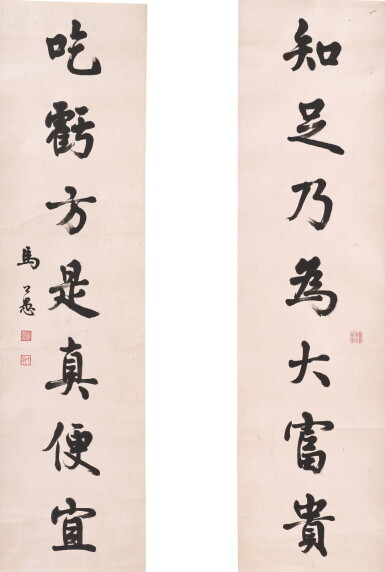 知足乃為大富貴
吃虧方是真便宜
馬公愚